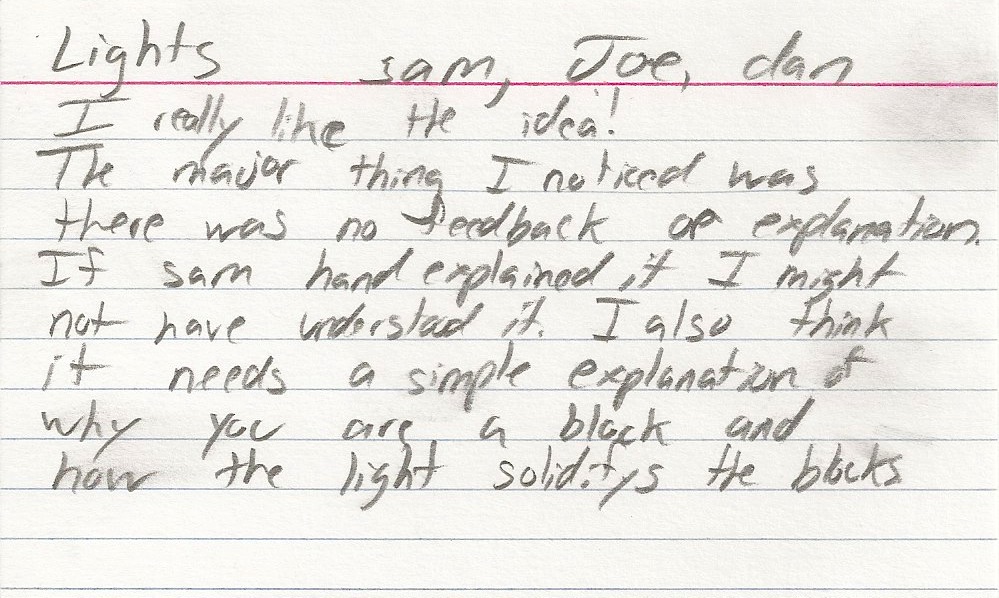 Lights sam, Joe, dan
I really like the idea!
The major thing I noticed was
there was no feedback or explanation.
If sam hand explained it I might
not have understood it. I also think
it needs a simple explanation of
why you are a block and
how the light solidifys the blocks